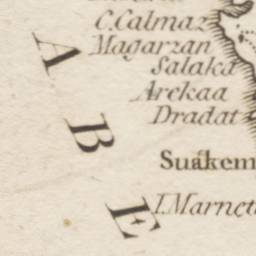 C. Calmaz
Magarzan
Salaka
Arekaa
Dradat
Suakem
I. Marnet
A
B
E